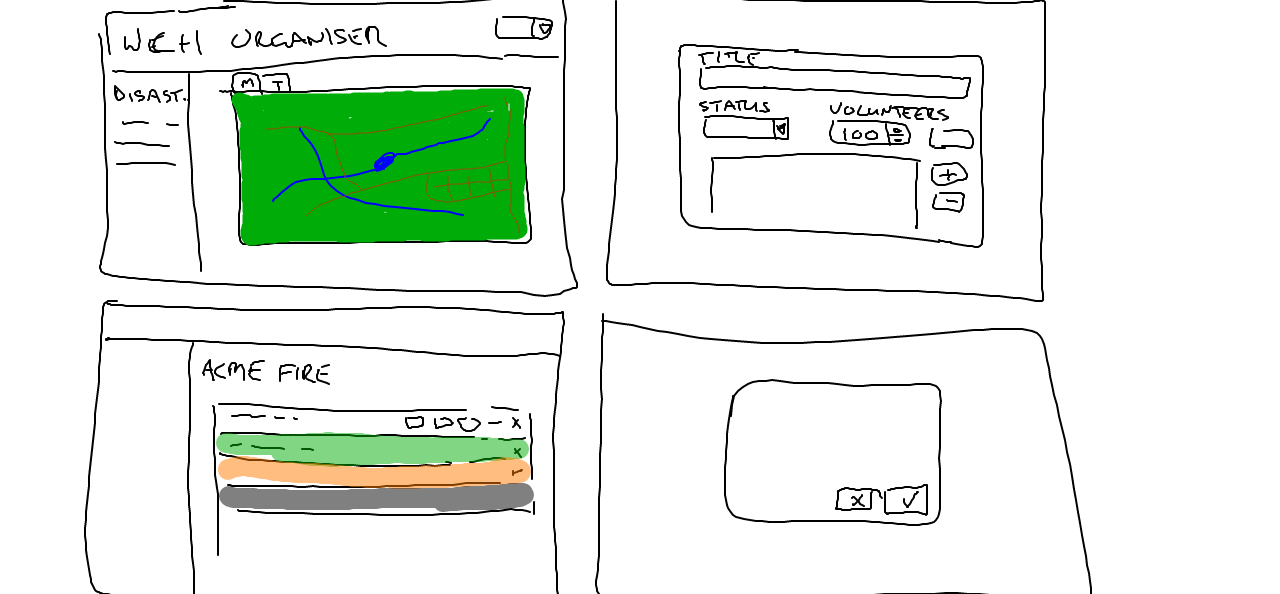 WCH ORGANISER
DISAST.
M T
TITLE
STATUS VOLUNTEERS
100
+
-
ACME FIRE
x
x
x ✓